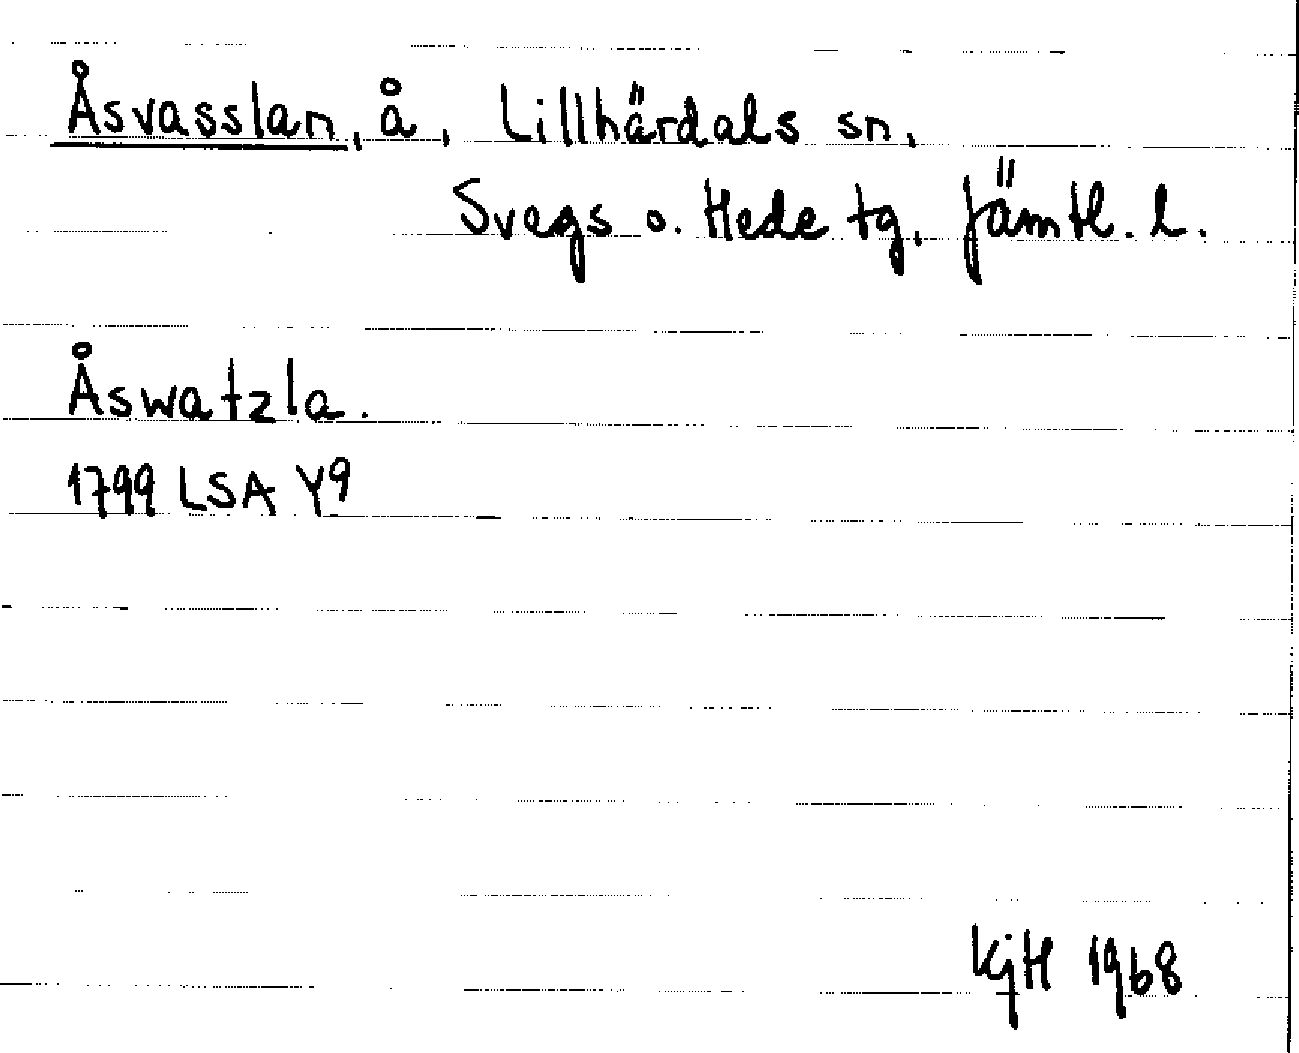 Åsvasslan, å, Lillhärdals sn,
Svegs o. Hede tg, Jämtl. l.
Åswatzla.
1799 LSA Y9
KjH 1968